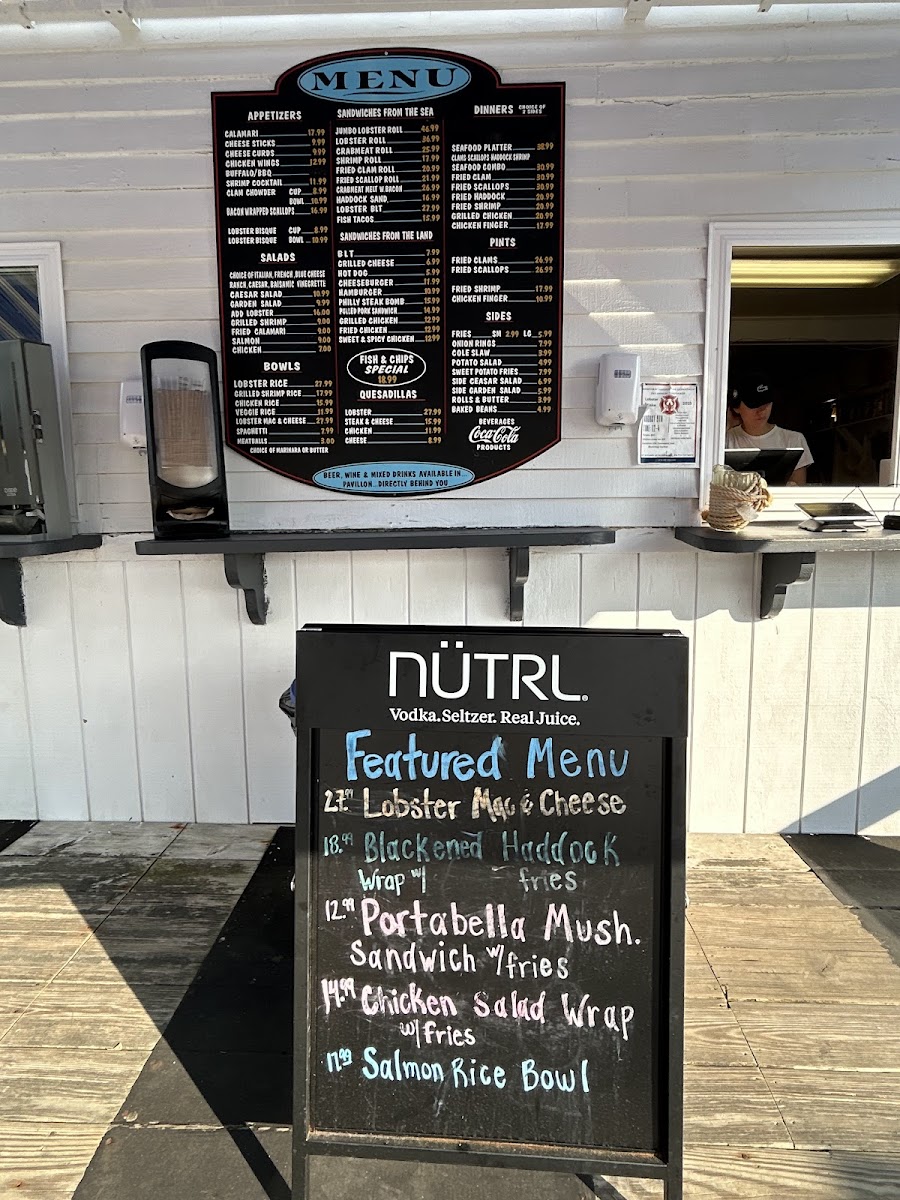 MENU
APPETIZERS
CALAMARI 17.99
CHEESE STICKS 9.99
CHEESE CURDS 9.99
CHICKEN WINGS 12.99
BUFFALO/BBQ
SHRIMP COCKTAIL 11.99
CLAM CHOWDER CUP 8.99
BOWL 10.99
BACON WRAPPED SCALLOPS 16.99
LOBSTER BISQUE CUP 8.99
LOBSTER BISQUE BOWL 10.99
SALADS
CHOICE OF ITALIAN, FRENCH, BLUE CHEESE
RANCH, CAESAR, BALSAMIC VINEGRETTE
CAESAR SALAD 10.99
GARDEN SALAD 9.99
ADD LOBSTER 16.00
GRILLED SHRIMP 9.00
FRIED CALAMARI 9.00
SALMON 9.00
CHICKEN 7.00
BOWLS
LOBSTER RICE 27.99
GRILLED SHRIMP RICE 17.99
CHICKEN RICE 15.99
VEGGIE RICE 11.99
LOBSTER MAC & CHEESE 27.99
SPAGHETTI 7.99
MEATBALLS 3.00
CHOICE OF MARINARA OR BUTTER
SANDWICHES FROM THE SEA
JUMBO LOBSTER ROLL 46.99
LOBSTER ROLL 36.99
CRABMEAT ROLL 25.99
SHRIMP ROLL 17.99
FRIED CLAM ROLL 20.99
FRIED SCALLOP ROLL 21.99
CRABMEAT MELT W.BACON 26.99
HADDOCK SAND. 16.99
LOBSTER BLT 27.99
FISH TACOS 15.99
SANDWICHES FROM THE LAND
BLT 7.99
GRILLED CHEESE 6.99
HOT DOG 5.99
CHEESEBURGER 11.99
HAMBURGER 10.99
PHILLY STEAK BOMB 15.99
PULLED PORK SANDWICH 14.99
GRILLED CHICKEN 12.99
FRIED CHICKEN 12.99
SWEET & SPICY CHICKEN 12.99
FISH & CHIPS
SPECIAL
18.99
QUESADILLAS
LOBSTER 27.99
STEAK & CHEESE 15.99
CHICKEN 11.99
CHEESE 8.99
DINNERS CHOICE OF
2 SIDES
SEAFOOD PLATTER 38.99
CLAMS SCALLOPS HADDOCK SHRIMP
SEAFOOD COMBO 30.99
FRIED CLAM 30.99
FRIED SCALLOPS 30.99
FRIED HADDOCK 20.99
FRIED SHRIMP 20.99
GRILLED CHICKEN 20.99
CHICKEN FINGER 17.99
PINTS
FRIED CLAMS 26.99
FRIED SCALLOPS 26.99
FRIED SHRIMP 17.99
CHICKEN FINGER 10.99
SIDES
FRIES SM 2.99 LG 5.99
ONION RINGS 7.99
COLE SLAW 3.99
POTATO SALAD 4.99
SWEET POTATO FRIES 7.99
SIDE CEASAR SALAD 6.99
SIDE GARDEN SALAD 5.99
ROLLS & BUTTER 3.99
BAKED BEANS 4.99
BEVERAGES
Coca-Cola
PRODUCTS
BEER, WINE & MIXED DRINKS AVAILABLE IN...
PAVILLON...DIRECTLY BEHIND YOU
NÜTRL
Vodka. Seltzer. Real Juice.
Featured Menu
27.99 Lobster Mac & Cheese
18.99 Blackened Haddock
Wrap w/ fries
12.99 Portabella Mush.
Sandwich w/fries
14.99 Chicken Salad Wrap
w/fries
17.99 Salmon Rice Bowl